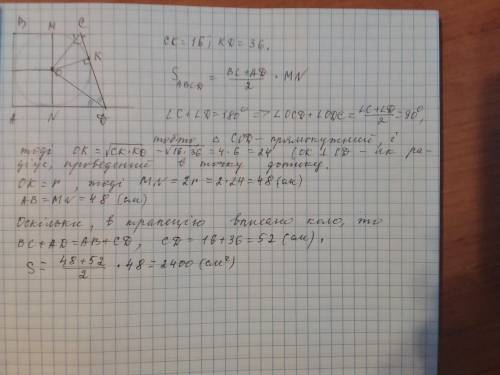 B M C
K
O
A N D
CK = 16; KD = 36.
S_ABCD = (BC+AD)/2 · MN
∠C+∠D=180° => ∠OCD+∠ODC = (∠C+∠D)/2 = 90°,
тобто △ COD – прямокутний, і
тоді OK = √CK·KD = √16·36 = 4·6 = 24 (OK ⊥ CD – як ра-
діус, проведений в точку дотику.
OK = r, тоді MN = 2r = 2·24 = 48 (см)
AB = MN = 48 (см)
Оскільки, в трапецію вписано коло, то
BC+AD = AB+CD, CD = 16+36 = 52 (см).
S = (48+52)/2 · 48 = 2400 (см²)